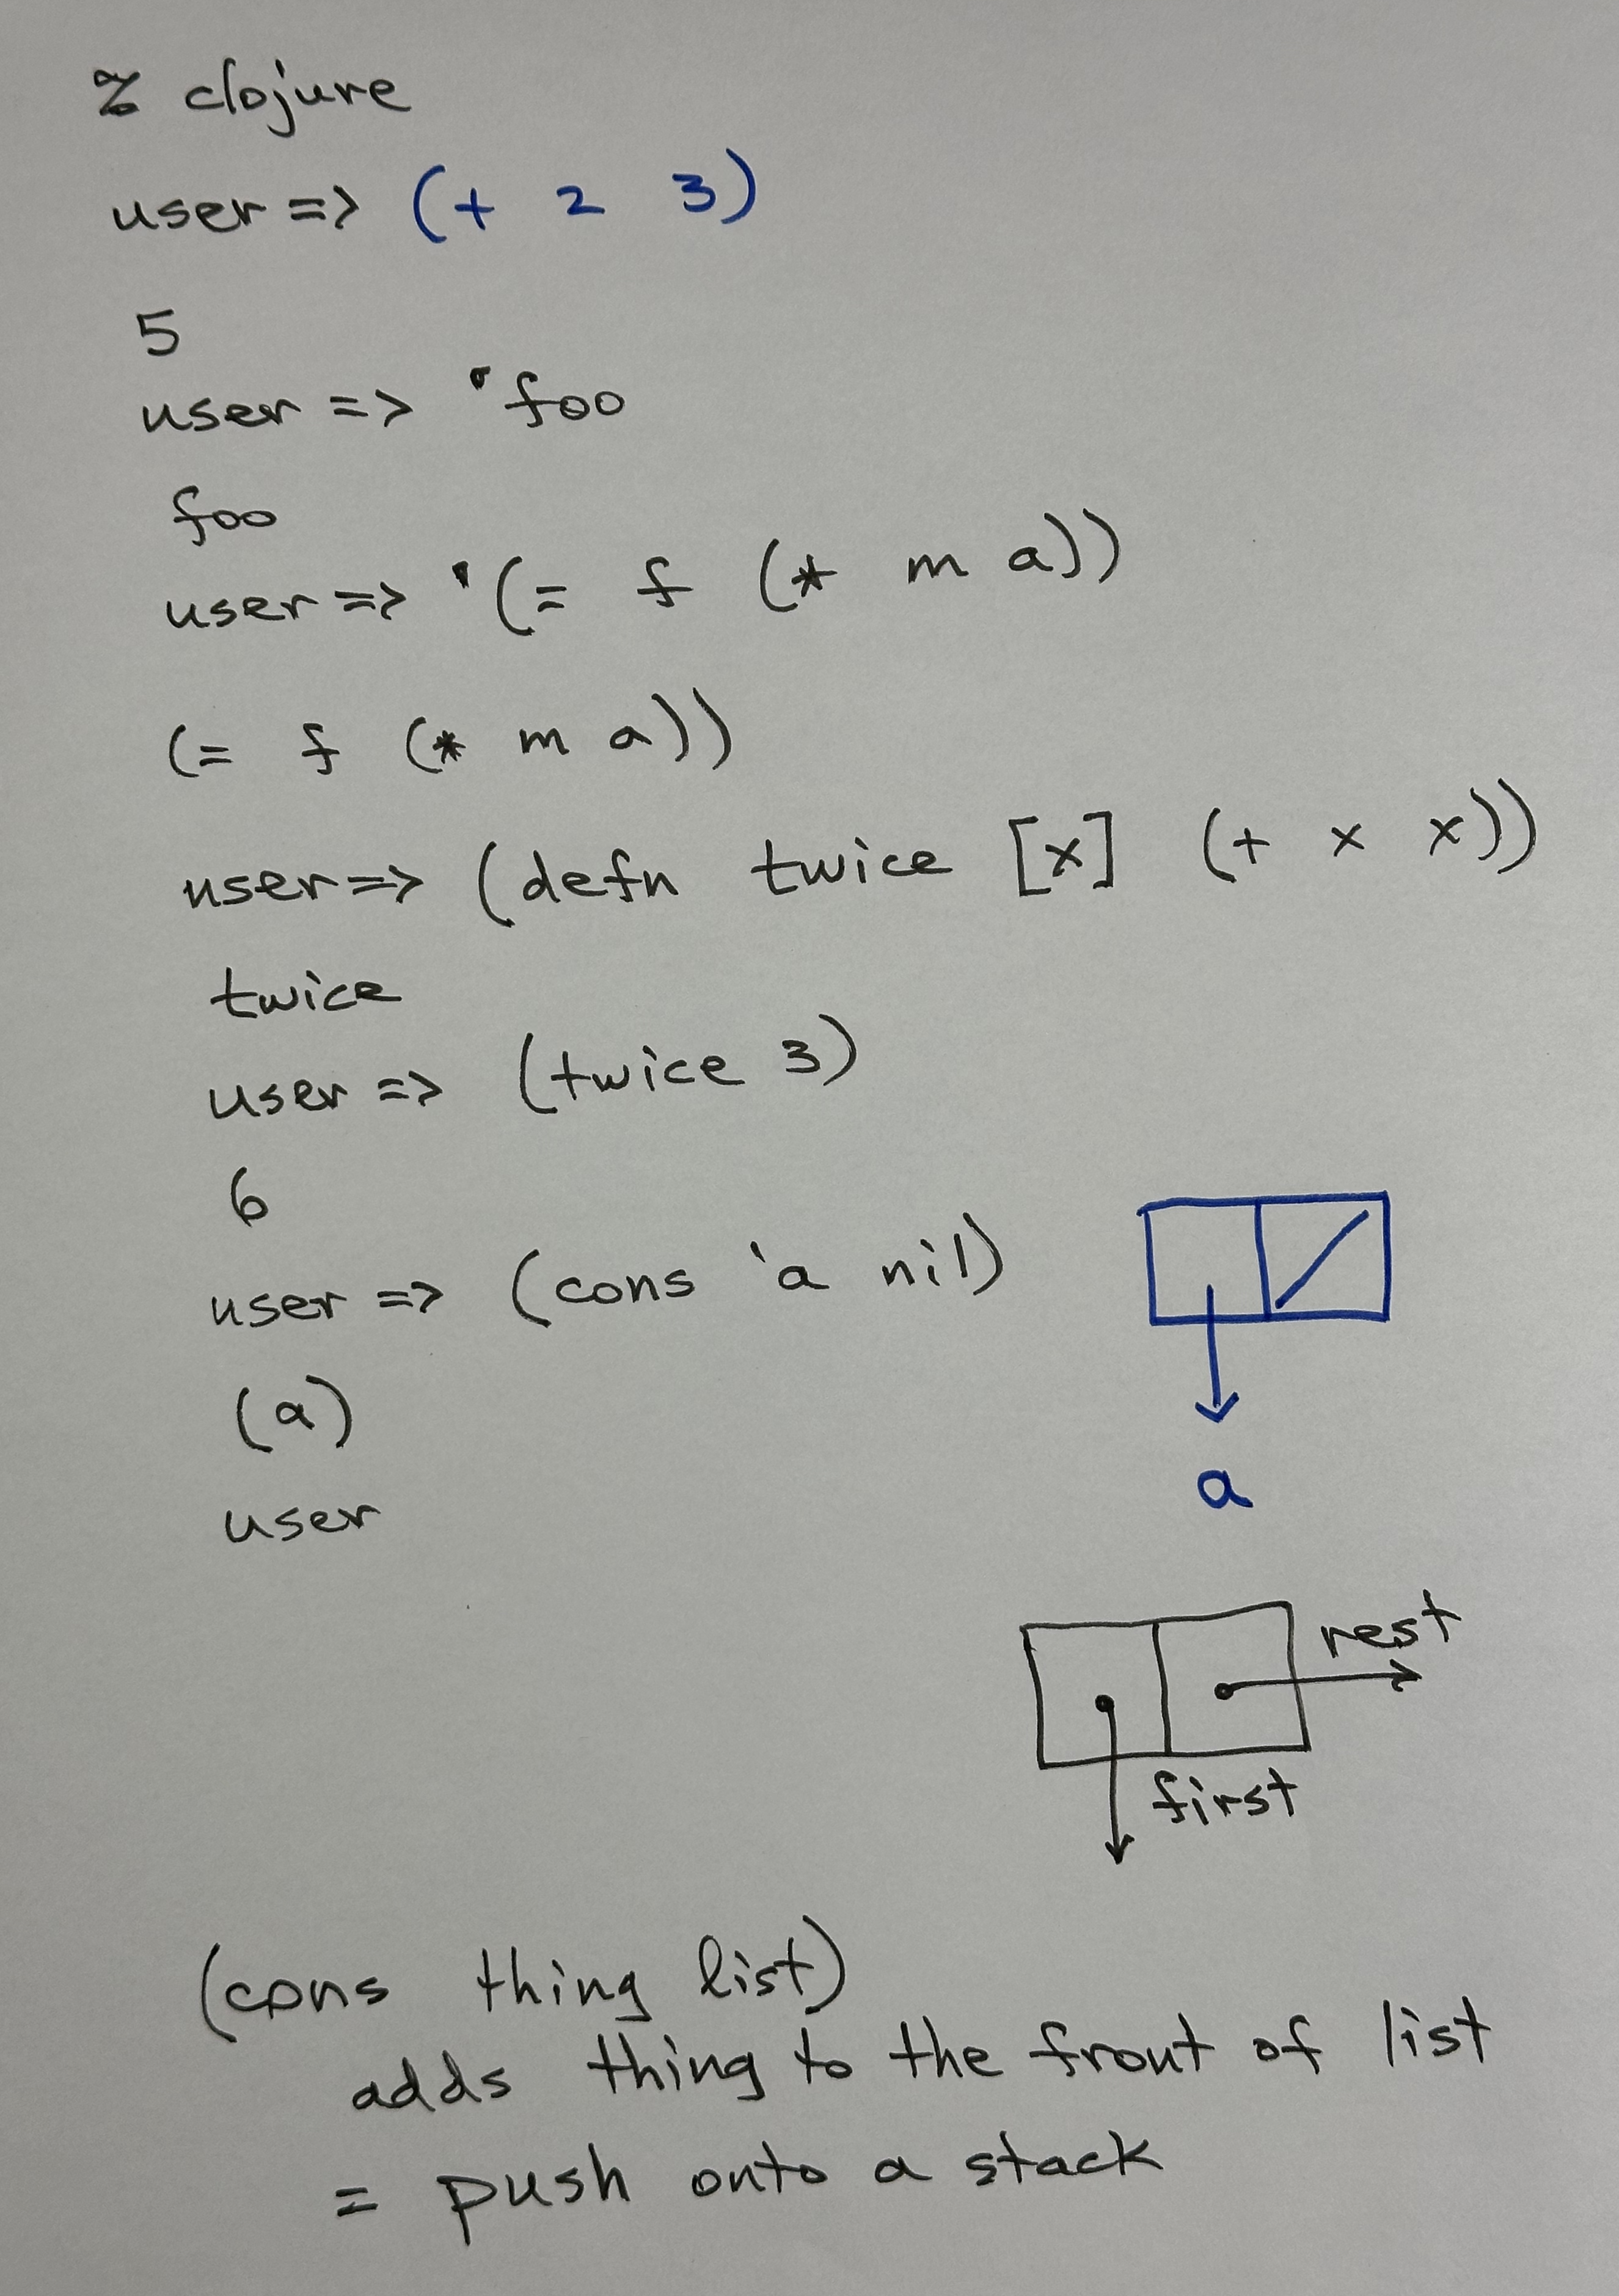 % clojure
user => (+ 2 3)
5
user => 'foo
foo
user => '(= f (* m a))
(= f (* m a))
user => (defn twice [x] (+ x x))
twice
user => (twice 3)
6
user => (cons 'a nil)
(a)
a
user
rest
first
(cons thing list)
adds thing to the front of list
= push onto a stack